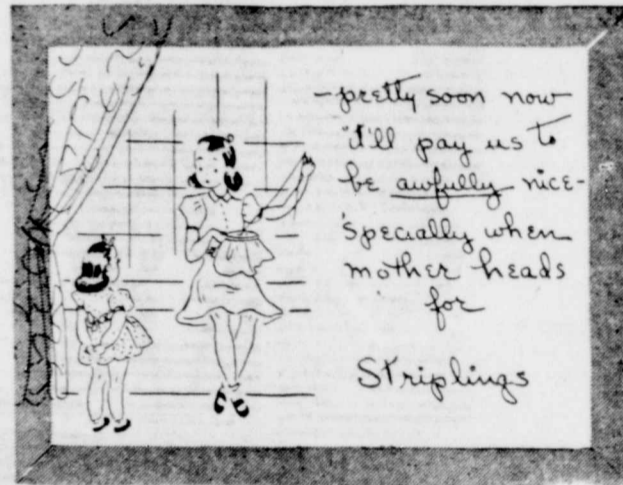 -pretty soon now
it'll pay us to
be awfully nice-
'specially when
mother heads
for
Striplings